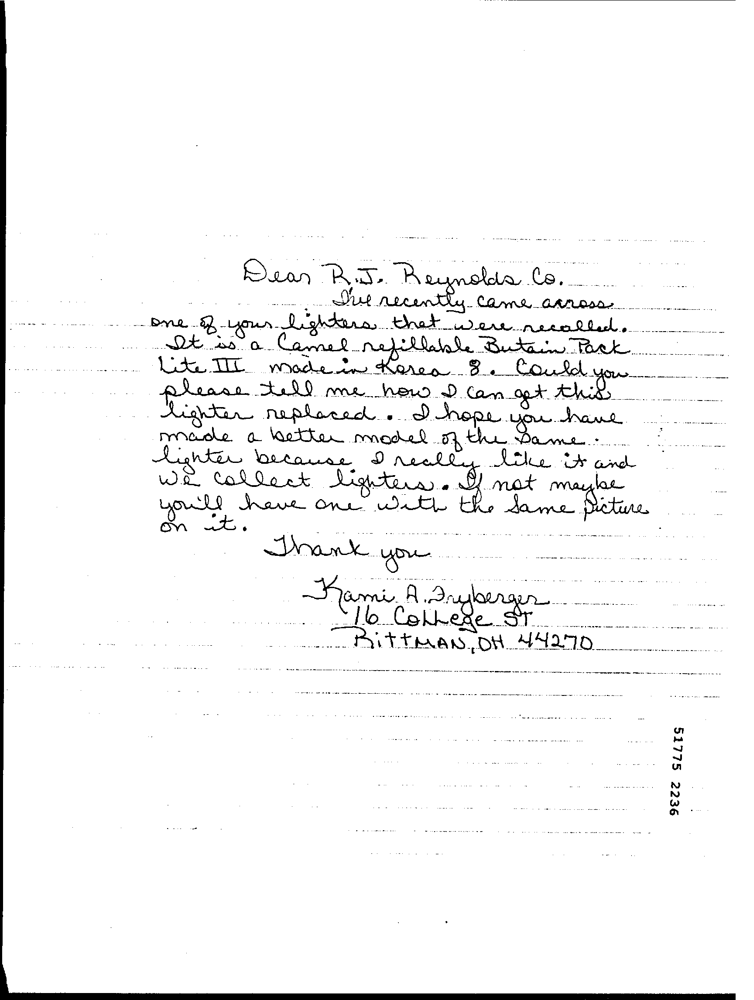 Dear R.J. Reynolds Co.
I've recently came across
one of your lighters that were recalled.
It is a Camel refillable Butain Pack
Lite III made in Korea 8. Could you
please tell me how I can get this
lighter replaced. I hope you have
made a better model of the same
lighter because I really like it and
we collect lighters. If not maybe
you'll have one with the same picture
on it.
Thank you
Kami A. Fryberger
16 College ST
RITTMAN, OH 44270
51775 2236